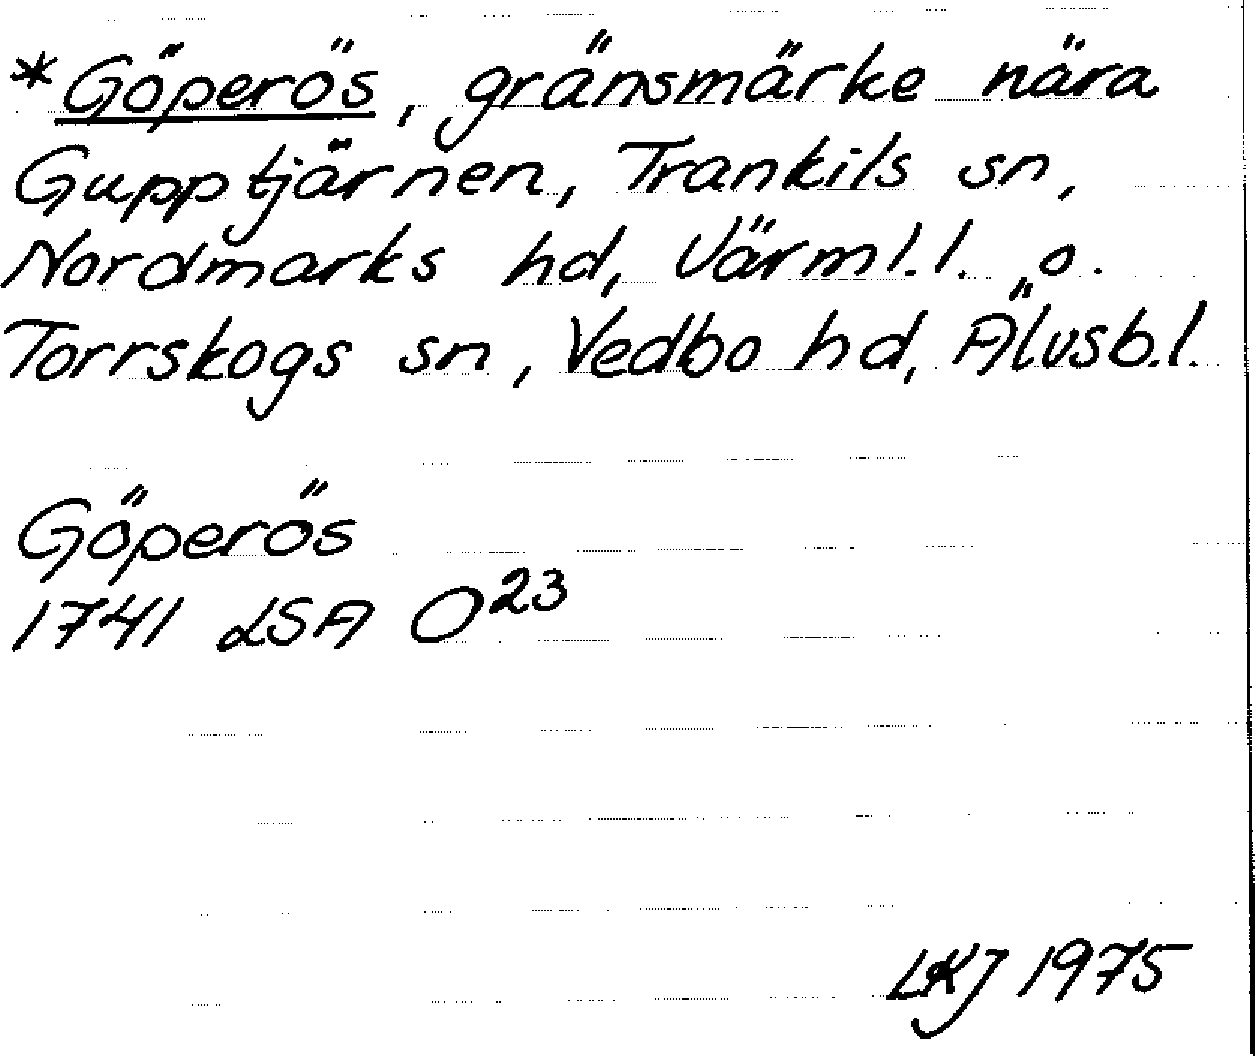 *Göperös, gränsmärke nära
Gupptjärnen, Trankils sn,
Nordmarks hd, Värml.l. o.
Torrskogs sn, Vedbo hd, Älvsb.l.
Göperös
1741 LSA O23
LKJ 1975